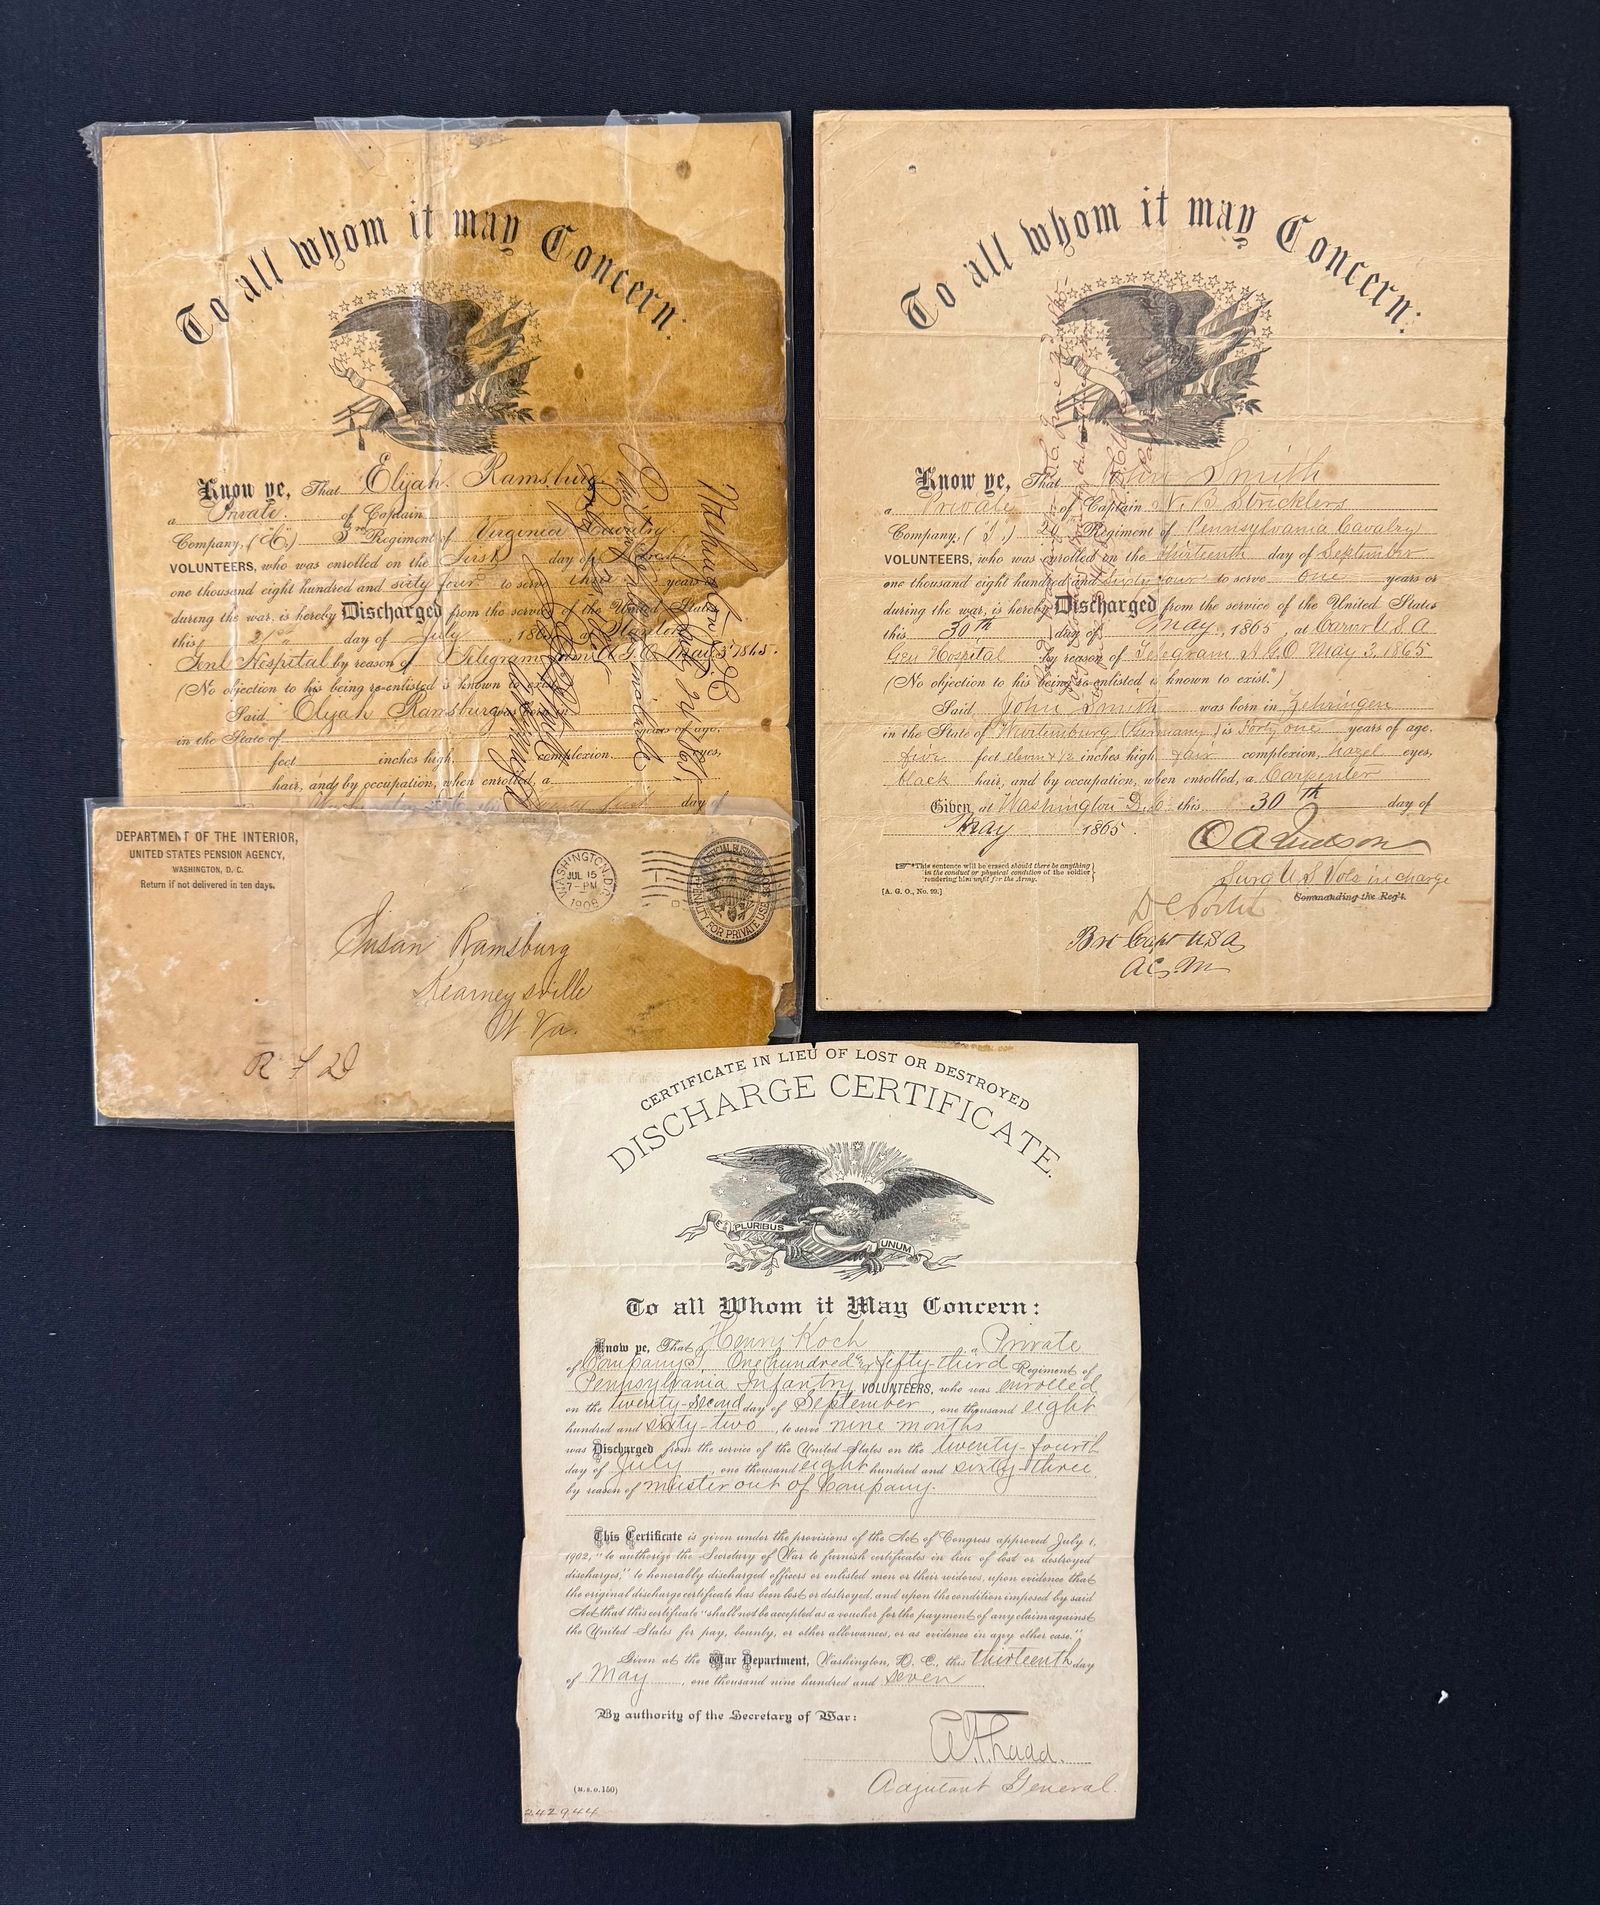 To all whom it may Concern:
Know ye, That Elijah Ramsburg
a Private of Captain
Company, ( ) 3rd Regiment of Virginia Cavalry
VOLUNTEERS, who was enrolled on the First day of
one thousand eight hundred and sixty four to serve years
during the war, is hereby Discharged from the service of the United States
this 21st day of July, 1865, at
Genl Hospital by reason of Telegram from A.G.O. May 3 1865.
(No objection to his being re-enlisted is known to exist.)
Said Elijah Ramsburg was born in
in the State of years of age,
feet inches high, complexion, eyes,
hair, and by occupation, when enrolled, a
Washington D.C. this first day of
Washington D.C.
DEPARTMENT OF THE INTERIOR,
UNITED STATES PENSION AGENCY,
WASHINGTON, D. C.
Return if not delivered in ten days.
WASHINGTON, D.C.
JUL 15
7-PM
1908
OFFICIAL BUSINESS
PENALTY FOR PRIVATE USE
Susan Ramsburg
Kearneysville
W. Va.
R F D
To all whom it may Concern:
Know ye, That John Smith
a Private of Captain N. B. Stricklers
Company, ( I. ) Regiment of Pennsylvania Cavalry
VOLUNTEERS, who was enrolled on the thirteenth day of September
one thousand eight hundred and Sixty four to serve One years or
during the war, is hereby Discharged from the service of the United States
this 30th day of May, 1865, at Carver U S A
Gen Hospital by reason of Telegram A.G.O May 3, 1865
(No objection to his being re-enlisted is known to exist.*)
Said John Smith was born in Zehringen
in the State of Wurtemburg (Germany) is Forty one years of age,
five feet eleven & 1/2 inches high, fair complexion, hazel eyes,
black hair, and by occupation, when enrolled, a Carpenter
Given at Washington D. C. this 30th day of
May 1865.
O A Judson
Surg U S Vols in charge
Commanding the Reg't.
*This sentence will be erased should there be anything
in the conduct or physical condition of the soldier
rendering him unfit for the Army.
[A. G. O., No. 99.]
Bvt Capt USA
A C. M
CERTIFICATE IN LIEU OF LOST OR DESTROYED
DISCHARGE CERTIFICATE.
E PLURIBUS UNUM
To all Whom it May Concern:
Know ye, That Henry Koch a Private
of Company I, One hundred & fifty-third Regiment of
Pennsylvania Infantry VOLUNTEERS, who was enrolled
on the twenty-second day of September, one thousand eight
hundred and sixty-two, to serve nine months
was Discharged from the service of the United States on the twenty-fourth
day of July, one thousand eight hundred and sixty-three,
by reason of muster out of Company.
This Certificate is given under the provisions of the Act of Congress approved July 1,
1902, "to authorize the Secretary of War to furnish certificates in lieu of lost or destroyed
discharges," to honorably discharged officers or enlisted men or their widows, upon evidence that
the original discharge certificate has been lost or destroyed, and upon the condition imposed by said
Act that this certificate "shall not be accepted as a voucher for the payment of any claim against
the United States for pay, bounty, or other allowances, or as evidence in any other case."
Given at the War Department, Washington, D. C., this thirteenth day
of May, one thousand nine hundred and seven
By authority of the Secretary of War:
Adjutant General.
(M.S.O. 150)
242944